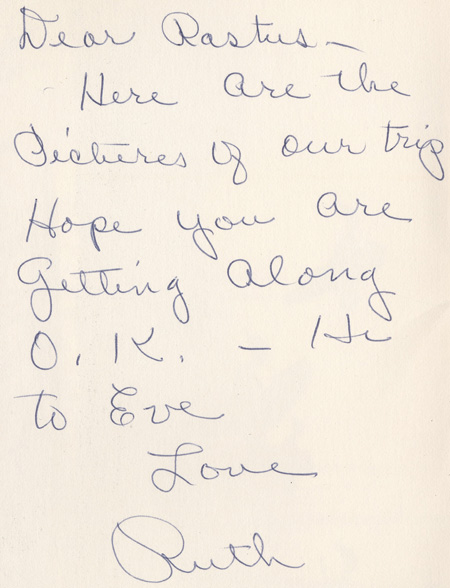 Dear Rastus —
Here are the
Pictures of our trip
Hope you are
Getting Along
O.K. — Hi
to Eve
Love
Ruth